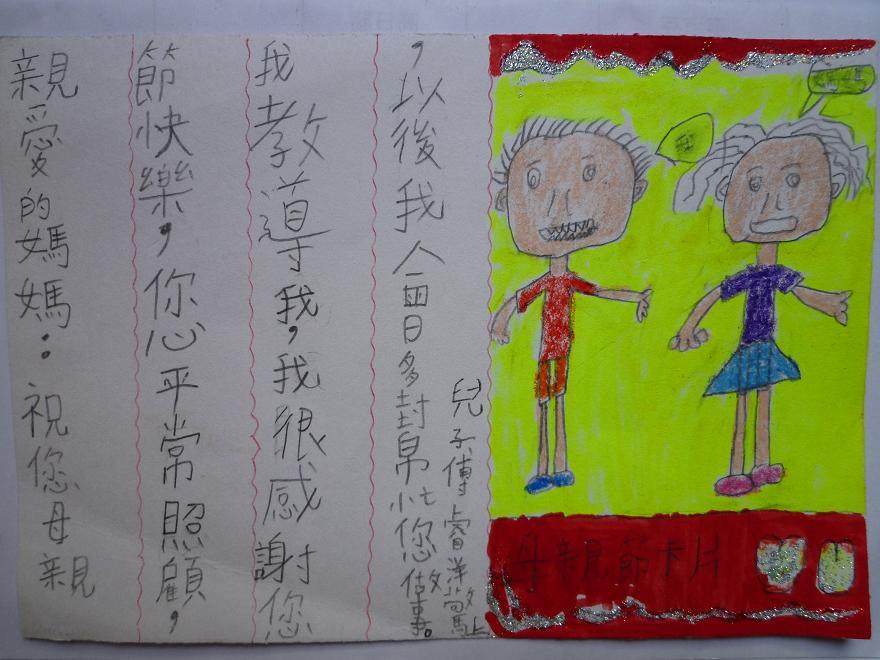 親愛的媽媽：祝您母親
節快樂，您平常照顧，
我教導我，我很感謝您
，以後我會多幫忙您做事。
兒子傅睿洋驚上
母親節卡片